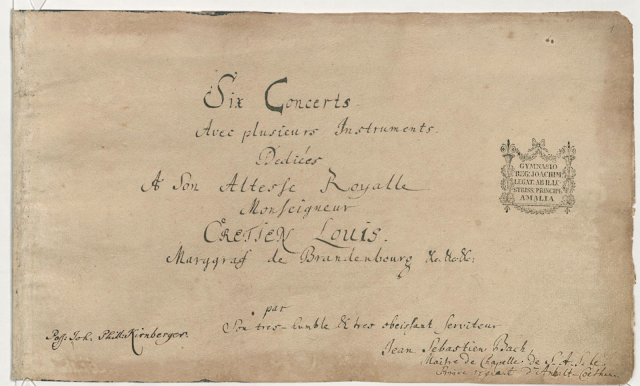 Six Concerts
Avec plusieurs Instruments.
Dediées
A Son Altesse Royalle
Monseigneur
CRETIEN Louis.
Marggraf de Brandenbourg &c. &c. &c:
par
Son tres-humble & tres obeissant serviteur
Jean Sebastien Bach,
Maître de Chapelle de S. A. S. le
Prince regnant d'Anhalt-Coethen
Poss: Joh. Phil. Kirnberger.
GYMNASIO
REG. JOACHIM.
LEGAT. AB ILL.
PRINCIP.
AMALIA